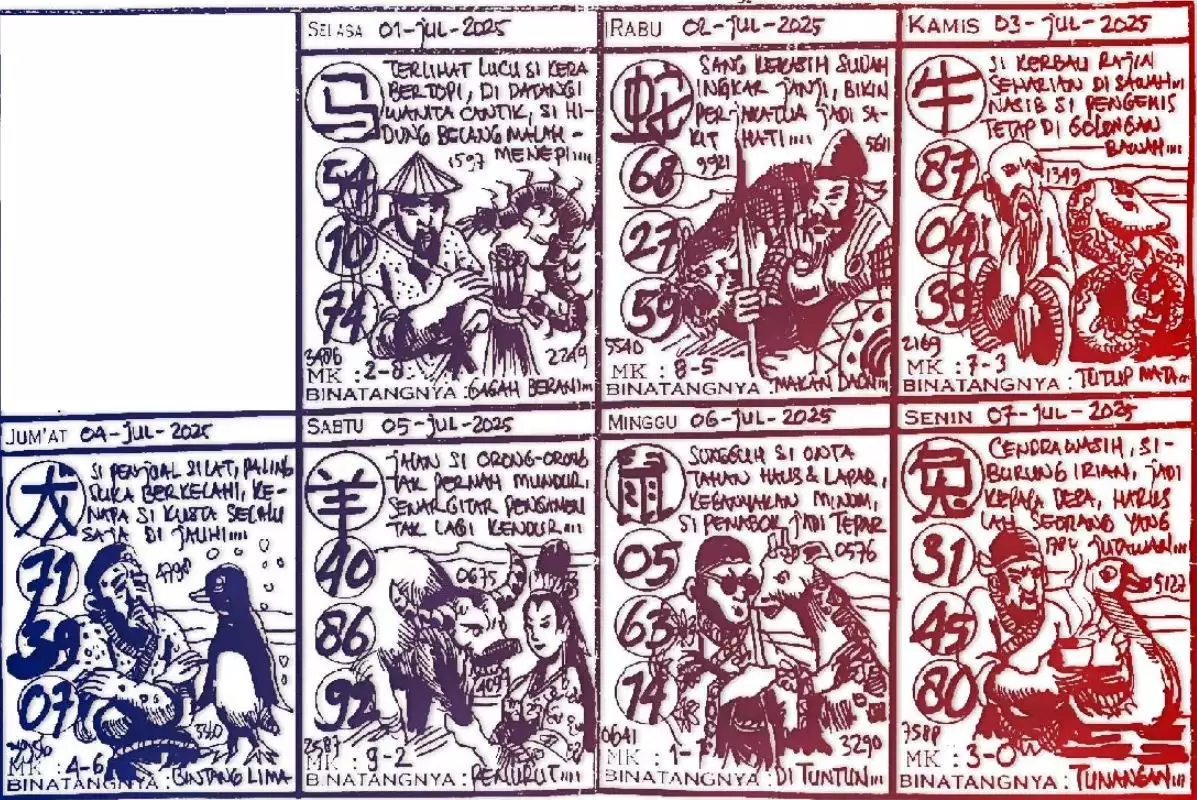 SELASA 01-JUL-2025
马
TERLIHAT LUCU SI KERA
BERTOPI, DI DATANGI
WANITA CANTIK, SI HI-
DUNG BELANG MALAH -
MENEPI....
1597
54
10
74
3486
2249
MK : 2-8
BINATANGNYA : GAGAH BERANI...
RABU 02-JUL-2025
蛇
SANG KEKASIH SUDAH
INGKAR JANJI, BIKIN
PERJAKATUA JADI SA-
KIT HATI....
9921
5611
68
27
59
5540
MK : 8-5
BINATANGNYA : MAKAN DAGING...
KAMIS 03-JUL-2025
牛
SI KERBAU RAJIN
SEHARIAN DI SAWAH...
NASIB SI PENGEMIS
TETAP DI GOLONGAN
BAWAH....
1349
87
04
39
5071
2169
MK : 7-3
BINATANGNYA : TUTUP MATA...
JUM'AT 04-JUL-2025
犬
SI PENJUAL SILAT, PALING
SUKA BERKELAHI, KE-
NAPA SI KUSTA SELALU
SAJA DI JAUHI....
4798
71
39
07
MK : 4-6
BINATANGNYA : BINTANG LIMA
SABTU 05-JUL-2025
羊
JALAN SI ORONG-ORONG
TAK PERNAH MUNDUR,
SENAR GITAR PENGAMEN
TAK LAGI KENDUR....
0675
40
86
92
4099
2587
MK : 9-2
BINATANGNYA : PENURUT....
MINGGU 06-JUL-2025
鼠
SUNGGUH SI ONTA
TAHAN HAUS & LAPAR,
KEBANYAKAN MINUM,
SI PENABOK JADI TEPAR
0576
05
63
14
0641
3290
MK : 1-7
BINATANGNYA : DI TUNTUN...
SENIN 07-JUL-2025
兔
CENDRAWASIH, SI-
BURUNG IRIAN, JADI
KEPALA DESA, HARUS
LAH SEORANG YANG
JUTAWAN...
31
45
80
9127
7588
MK : 3-0
BINATANGNYA : TUNANGAN...